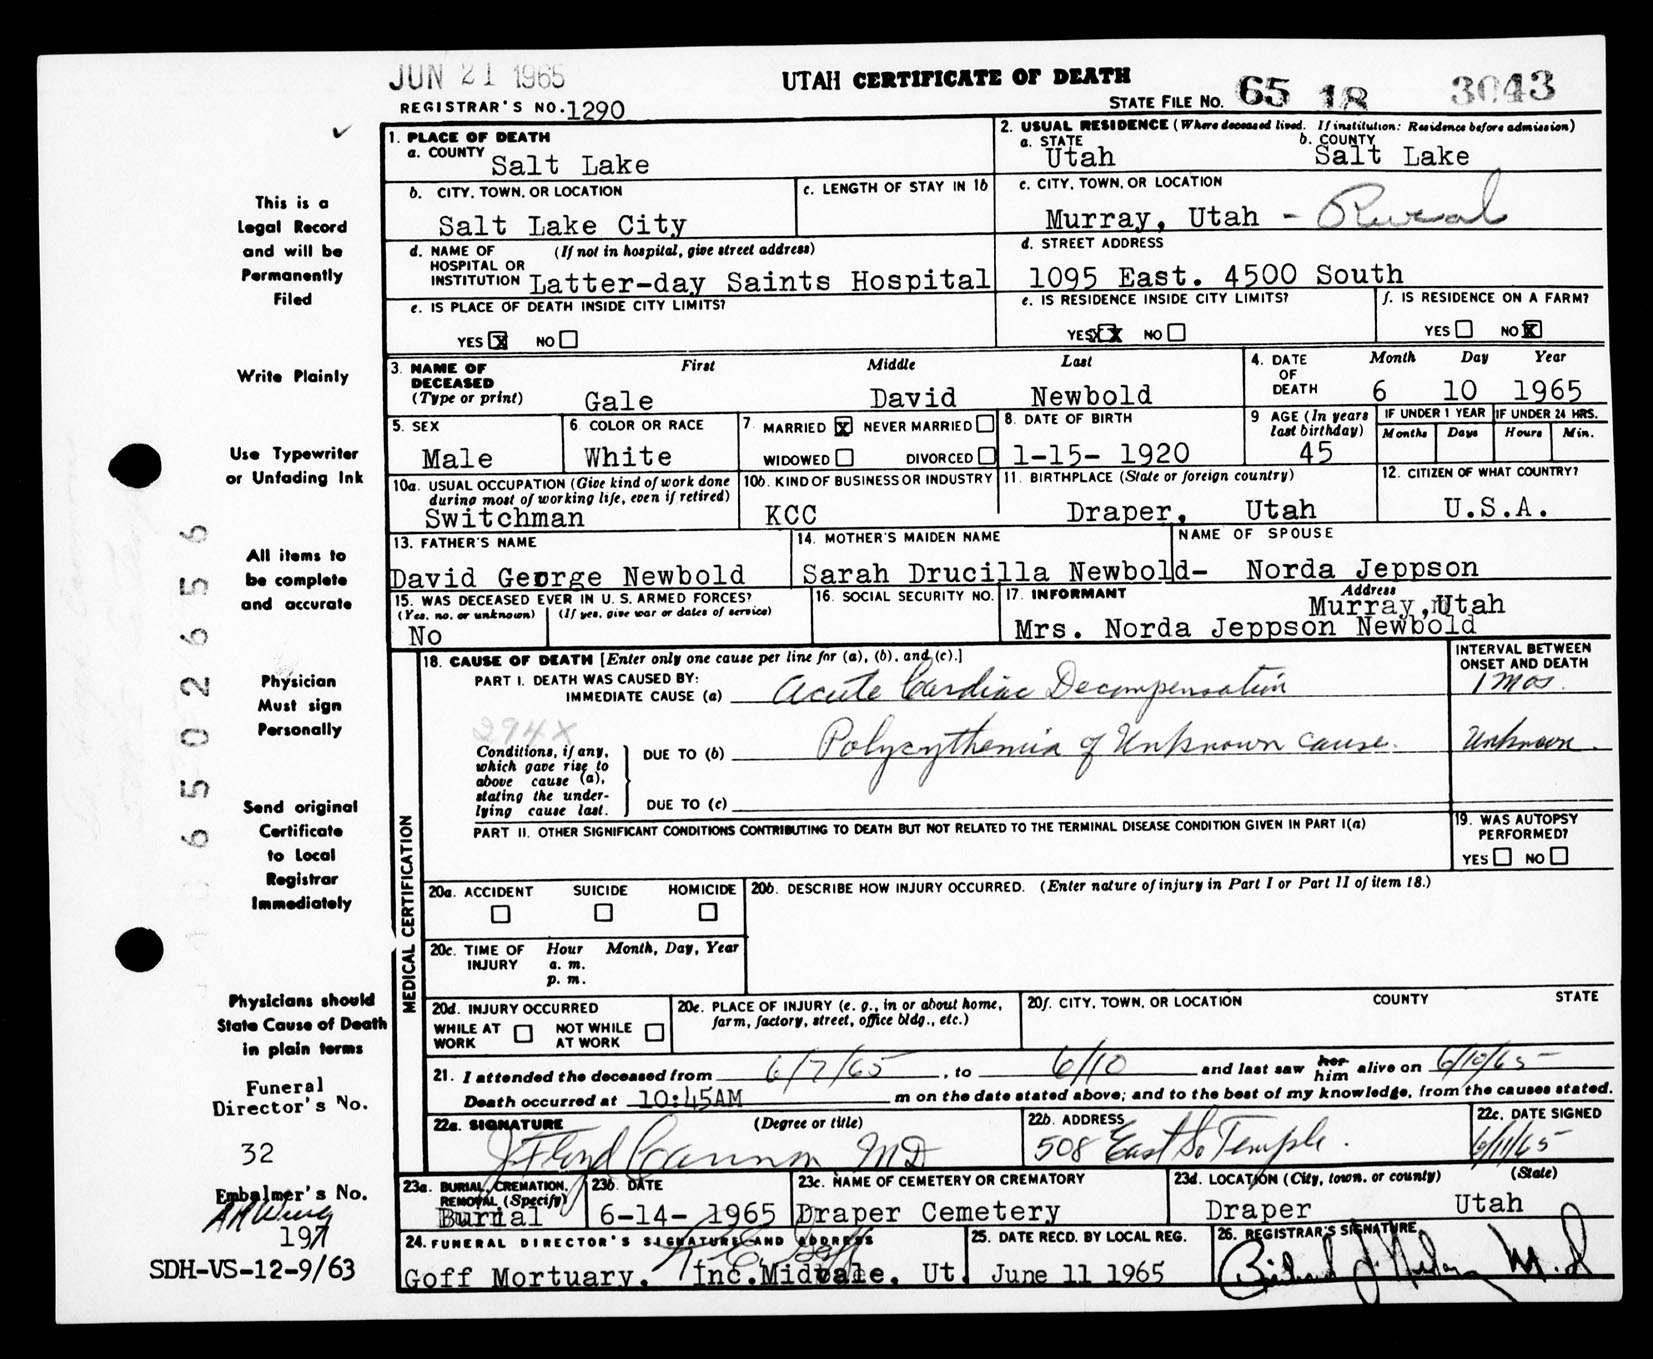 JUN 21 1965
UTAH CERTIFICATE OF DEATH
REGISTRAR'S NO. 1290
STATE FILE NO. 65 18 3043
This is a
Legal Record
and will be
Permanently
Filed
Write Plainly
Use Typewriter
or Unfading Ink
All items to
be complete
and accurate
Physician
Must sign
Personally
Send original
Certificate
to Local
Registrar
Immediately
Physicians should
State Cause of Death
in plain terms
Funeral
Director's No.
32
Embalmer's No.
197
SDH-VS-12-9/63
1. PLACE OF DEATH
a. COUNTY Salt Lake
2. USUAL RESIDENCE (Where deceased lived. If institution: Residence before admission)
a. STATE Utah
b. COUNTY Salt Lake
b. CITY, TOWN, OR LOCATION
Salt Lake City
c. LENGTH OF STAY IN 1b
c. CITY, TOWN, OR LOCATION
Murray, Utah - Rural
d. NAME OF HOSPITAL OR INSTITUTION (If not in hospital, give street address)
Latter-day Saints Hospital
d. STREET ADDRESS
1095 East. 4500 South
e. IS PLACE OF DEATH INSIDE CITY LIMITS?
YES X NO
e. IS RESIDENCE INSIDE CITY LIMITS?
YES XX NO
f. IS RESIDENCE ON A FARM?
YES NO X
3. NAME OF DECEASED (Type or print)
First Middle Last
Gale David Newbold
4. DATE OF DEATH
Month Day Year
6 10 1965
5. SEX
Male
6. COLOR OR RACE
White
7. MARRIED X NEVER MARRIED
WIDOWED DIVORCED
8. DATE OF BIRTH
1-15- 1920
9 AGE (In years last birthday)
45
IF UNDER 1 YEAR
Months Days
IF UNDER 24 HRS.
Hours Min.
10a. USUAL OCCUPATION (Give kind of work done during most of working life, even if retired)
Switchman
10b. KIND OF BUSINESS OR INDUSTRY
KCC
11. BIRTHPLACE (State or foreign country)
Draper, Utah
12. CITIZEN OF WHAT COUNTRY?
U.S.A.
13. FATHER'S NAME
David George Newbold
14. MOTHER'S MAIDEN NAME
Sarah Drucilla Newbold-
NAME OF SPOUSE
Norda Jeppson
15. WAS DECEASED EVER IN U. S. ARMED FORCES?
(Yes, no, or unknown) (If yes, give war or dates of service)
No
16. SOCIAL SECURITY NO.
17. INFORMANT Address
Murray, Utah
Mrs. Norda Jeppson Newbold
MEDICAL CERTIFICATION
18. CAUSE OF DEATH [Enter only one cause per line for (a), (b), and (c).]
INTERVAL BETWEEN ONSET AND DEATH
PART I. DEATH WAS CAUSED BY:
IMMEDIATE CAUSE (a) Acute Cardiac Decompensation 1 mos.
294X
Conditions, if any, which gave rise to above cause (a), stating the underlying cause last.
DUE TO (b) Polycythemia of Unknown cause. Unknown.
DUE TO (c)
PART II. OTHER SIGNIFICANT CONDITIONS CONTRIBUTING TO DEATH BUT NOT RELATED TO THE TERMINAL DISEASE CONDITION GIVEN IN PART I(a)
19. WAS AUTOPSY PERFORMED?
YES NO
20a. ACCIDENT SUICIDE HOMICIDE
20b. DESCRIBE HOW INJURY OCCURRED. (Enter nature of injury in Part I or Part II of item 18.)
20c. TIME OF INJURY Hour Month, Day, Year
a. m.
p. m.
20d. INJURY OCCURRED
WHILE AT WORK NOT WHILE AT WORK
20e. PLACE OF INJURY (e. g., in or about home, farm, factory, street, office bldg., etc.)
20f. CITY, TOWN, OR LOCATION COUNTY STATE
21. I attended the deceased from 6/7/65, to 6/10 and last saw her him alive on 6/10/65
Death occurred at 10:45AM m on the date stated above; and to the best of my knowledge, from the causes stated.
22a. SIGNATURE (Degree or title)
J. Floyd Cannon MD
22b. ADDRESS
508 East So Temple.
22c. DATE SIGNED
6/11/65
23a. BURIAL, CREMATION, REMOVAL (Specify)
Burial
23b. DATE
6-14- 1965
23c. NAME OF CEMETERY OR CREMATORY
Draper Cemetery
23d. LOCATION (City, town, or county) (State)
Draper Utah
24. FUNERAL DIRECTOR'S SIGNATURE AND ADDRESS
Goff Mortuary, Inc. Midvale, Ut.
25. DATE RECD. BY LOCAL REG.
June 11 1965
26. REGISTRAR'S SIGNATURE